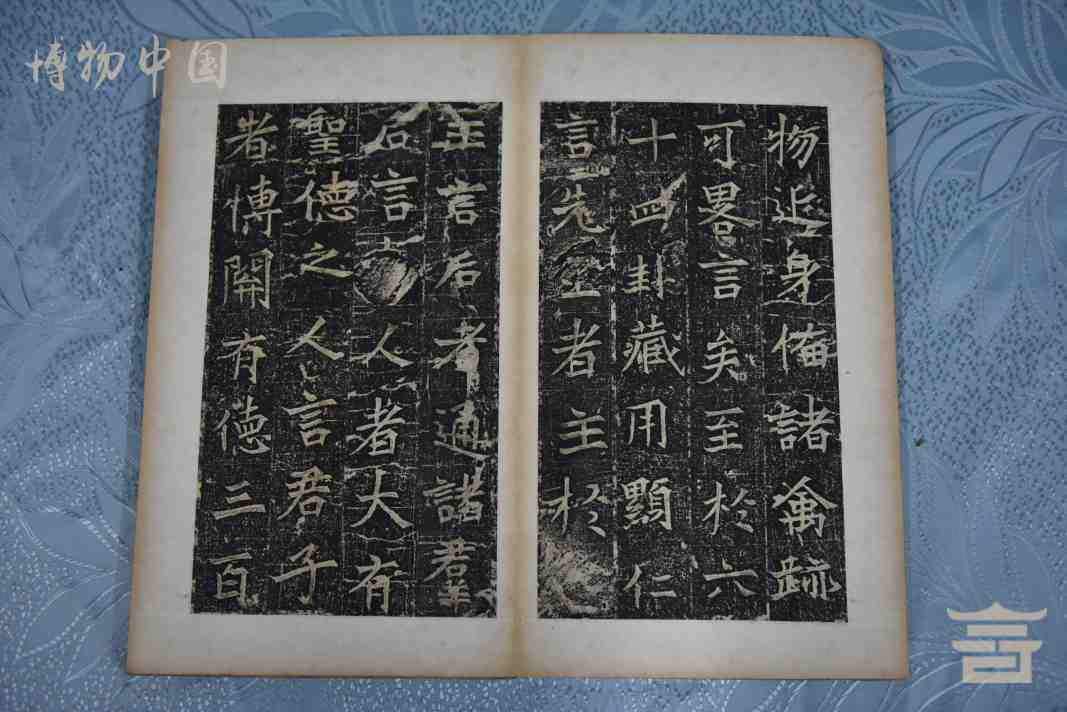 博物中国
物近身備諸禽跡
可畧言矣至於六
十四卦藏用顯仁
言先王者主於
王言后者通諸君
后言大人者大有
聖德之人言君子
者博關有德三百